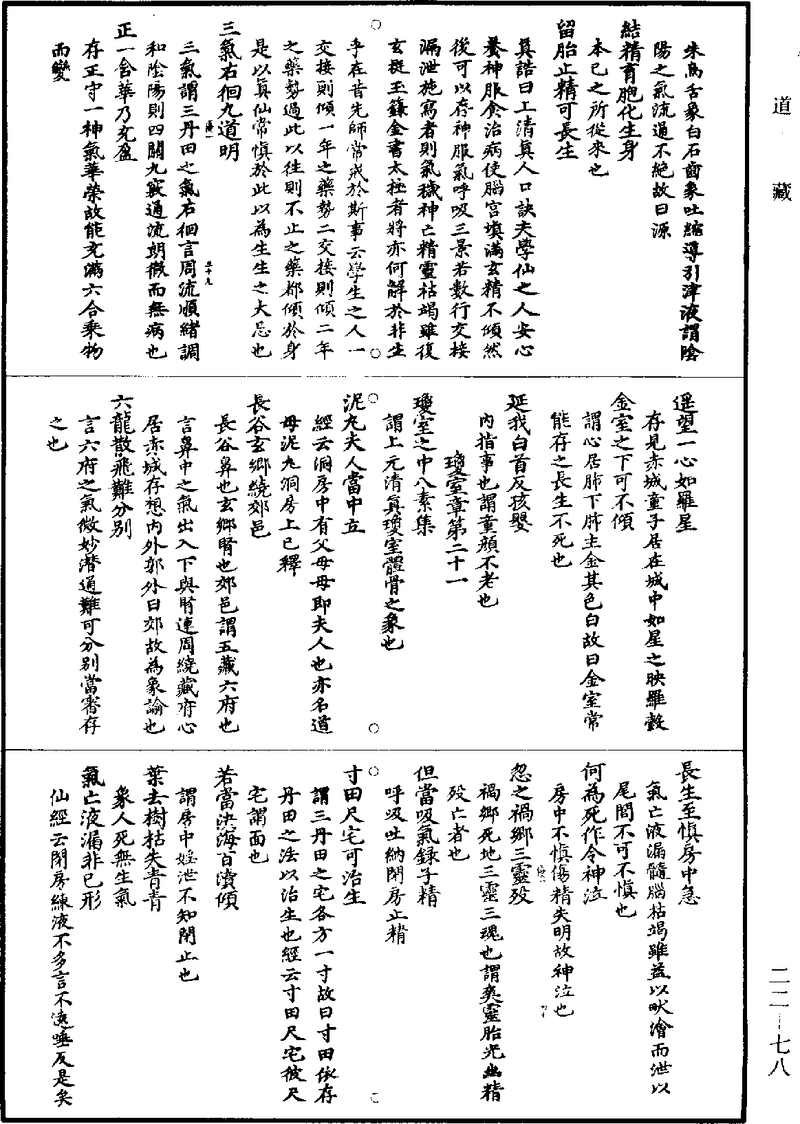 道藏
朱鳥舌象白石齒象吐縮導引津液謂陰
陽之氣流通不絕故曰源
結精育胞化生身
本已之所從來也
留胎止精可長生
真誥曰上清真人口訣夫學仙之人安心
養神服食治病使腦宮填滿玄精不傾然
後可以存神服氣呼吸三景若數行交接
漏泄施寫者則氣穢神亡精靈枯竭雖復
玄挺玉籙金書太極者將亦何解於非生
乎在昔先師常戒於斯事云學生之人一
交接則傾一年之藥勢二交接則傾二年
之藥勢過此以往則不止之藥都傾於身
是以真仙常慎於此以為生生之大忌也
三氣右徊九道明
三氣謂三丹田之氣右徊言周流順緒調
和陰陽則四關九竅通流朗徹而無病也
正一含華乃充盈
存正守一神氣華榮故能充滿六合乘物
而變
遥望一心如羅星
存見赤城童子居在城中如星之映羅縠
金室之下可不傾
謂心居肺下肺主金其色白故曰金室常
能存之長生不死也
延我白首反孩嬰
內指事也謂童顏不老也
瓊室章第二十一
瓊室之中八素集
謂上元清真瓊室體骨之象也
泥丸夫人當中立
經云洞房中有父母母即夫人也亦名道
母泥丸洞房上已釋
長谷玄鄉繞郊邑
長谷鼻也玄鄉腎也郊邑謂五藏六府也
言鼻中之氣出入下與腎連周繞藏府心
居赤城存想內外郭外曰郊故為象諭也
六龍散飛難分別
言六府之氣微妙潛通難可分別當審存
之也
長生至慎房中急
氣亡液漏髓腦枯竭雖益以畎澮而泄以
尾閭不可不慎也
何為死作令神泣
房中不慎傷精失明故神泣也
忽之禍鄉三靈歿
禍鄉死地三靈三魂也謂爽靈胎光幽精
歿亡者也
但當吸氣錄子精
呼吸吐納閉房止精
寸田尺宅可治生
謂三丹田之宅各方一寸故曰寸田依存
丹田之法以治生也經云寸田尺宅彼尺
宅謂面也
若當決海百瀆傾
謂房中婬泄不知閉止也
葉去樹枯失青青
象人死無生氣
氣亡液漏非已形
仙經云閉房練液不多言不遠唾反是矣
二二—七八